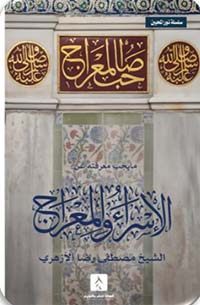 سلسلة نور المحبين
صلى الله عليه وسلم
صاحب المعراج
صلى الله عليه وسلم
ما يجب معرفته عن
الإسراء والمعراج
الشيخ مصطفى رضا الأزهري